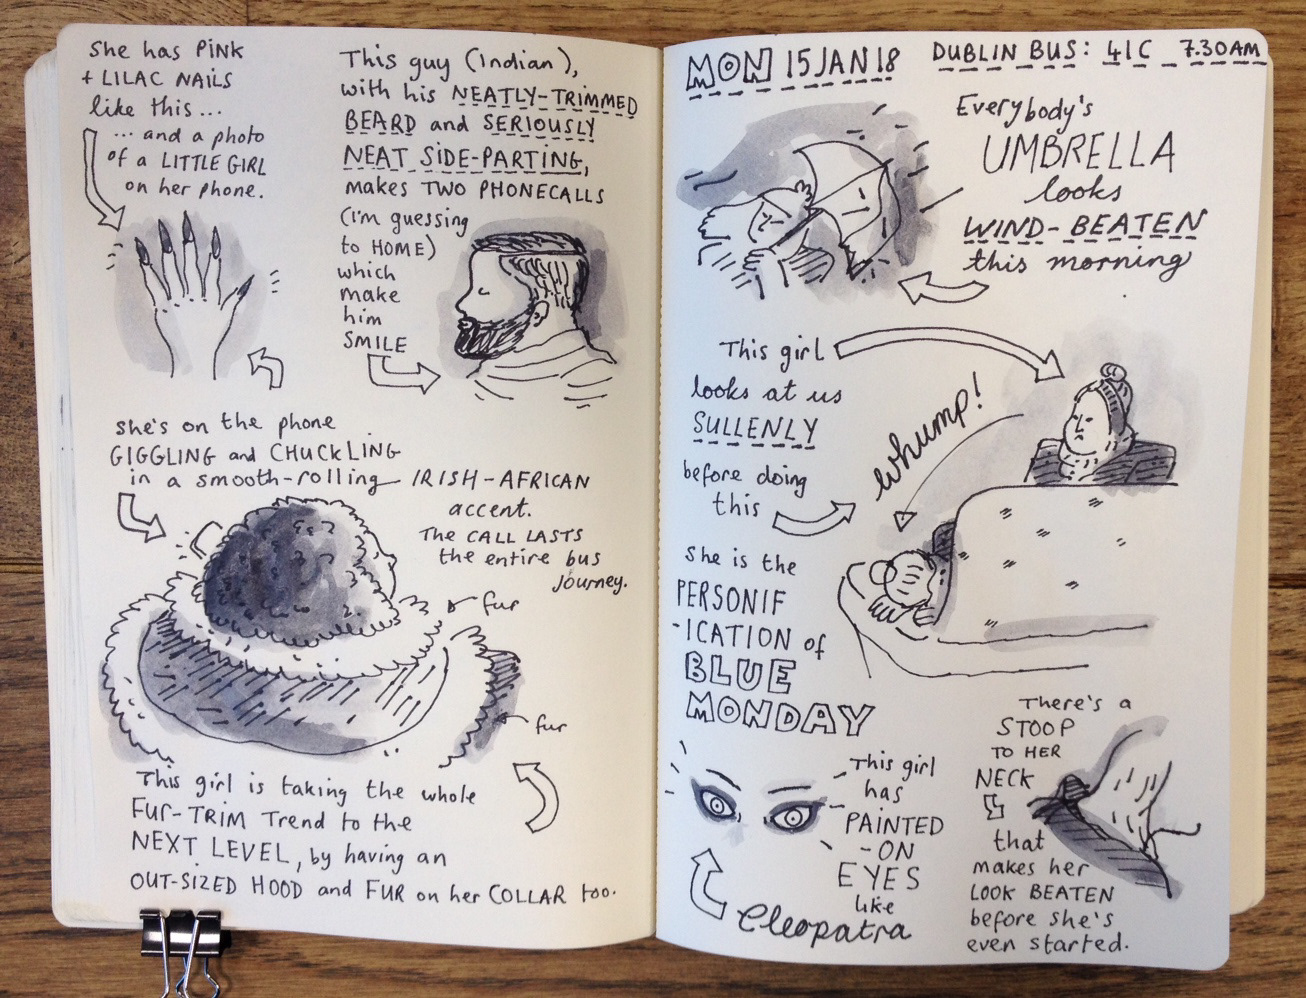 She has PiNK
+ LILAC NAiLS
like this ...
... and a photo
of a LITTLE GiRL
on her phone.
This guy (Indian),
with his NEATLY-TRIMMED
BEARD and SERIOUSLY
NEAT SiDE-PARTING,
makes TWO PHONECALLS
(I'm guessing
to HOME)
which
make
him
SMILE
She's on the phone
GIGGLING and CHUCKLING
in a smooth-rolling IRISH-AFRICAN
accent.
THE CALL LASTS
the entire bus
journey.
fur
fur
This girl is taking the whole
FUR-TRIM Trend to the
NEXT LEVEL, by having an
OUT-SIZED HOOD and FUR on her COLLAR too.
MON 15 JAN 18
DUBLIN BUS: 41C 7.30AM
Everybody's
UMBRELLA
looks
WIND-BEATEN
this morning
This girl
looks at us
SULLENLY
before doing
this
whump!
She is the
PERSONIF
-ICATION of
BLUE
MONDAY
This girl
has
PAINTED
-ON
EYES
like
Cleopatra
There's a
STOOP
TO HER
NECK
that
makes her
LOOK BEATEN
before she's
even started.